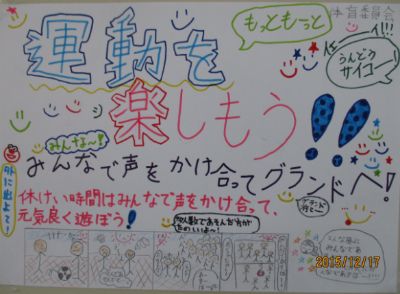 体育委員会
もっともーっと
運動を
イェーイ!!!
うんどう
サイコー!
楽しもう!!
みんな〜!
みんなで声をかけ合ってグランドへ!
外に出よて!
休けい時間はみんなで声をかけ合って、
元気良く遊ぼう!
2015/12/17